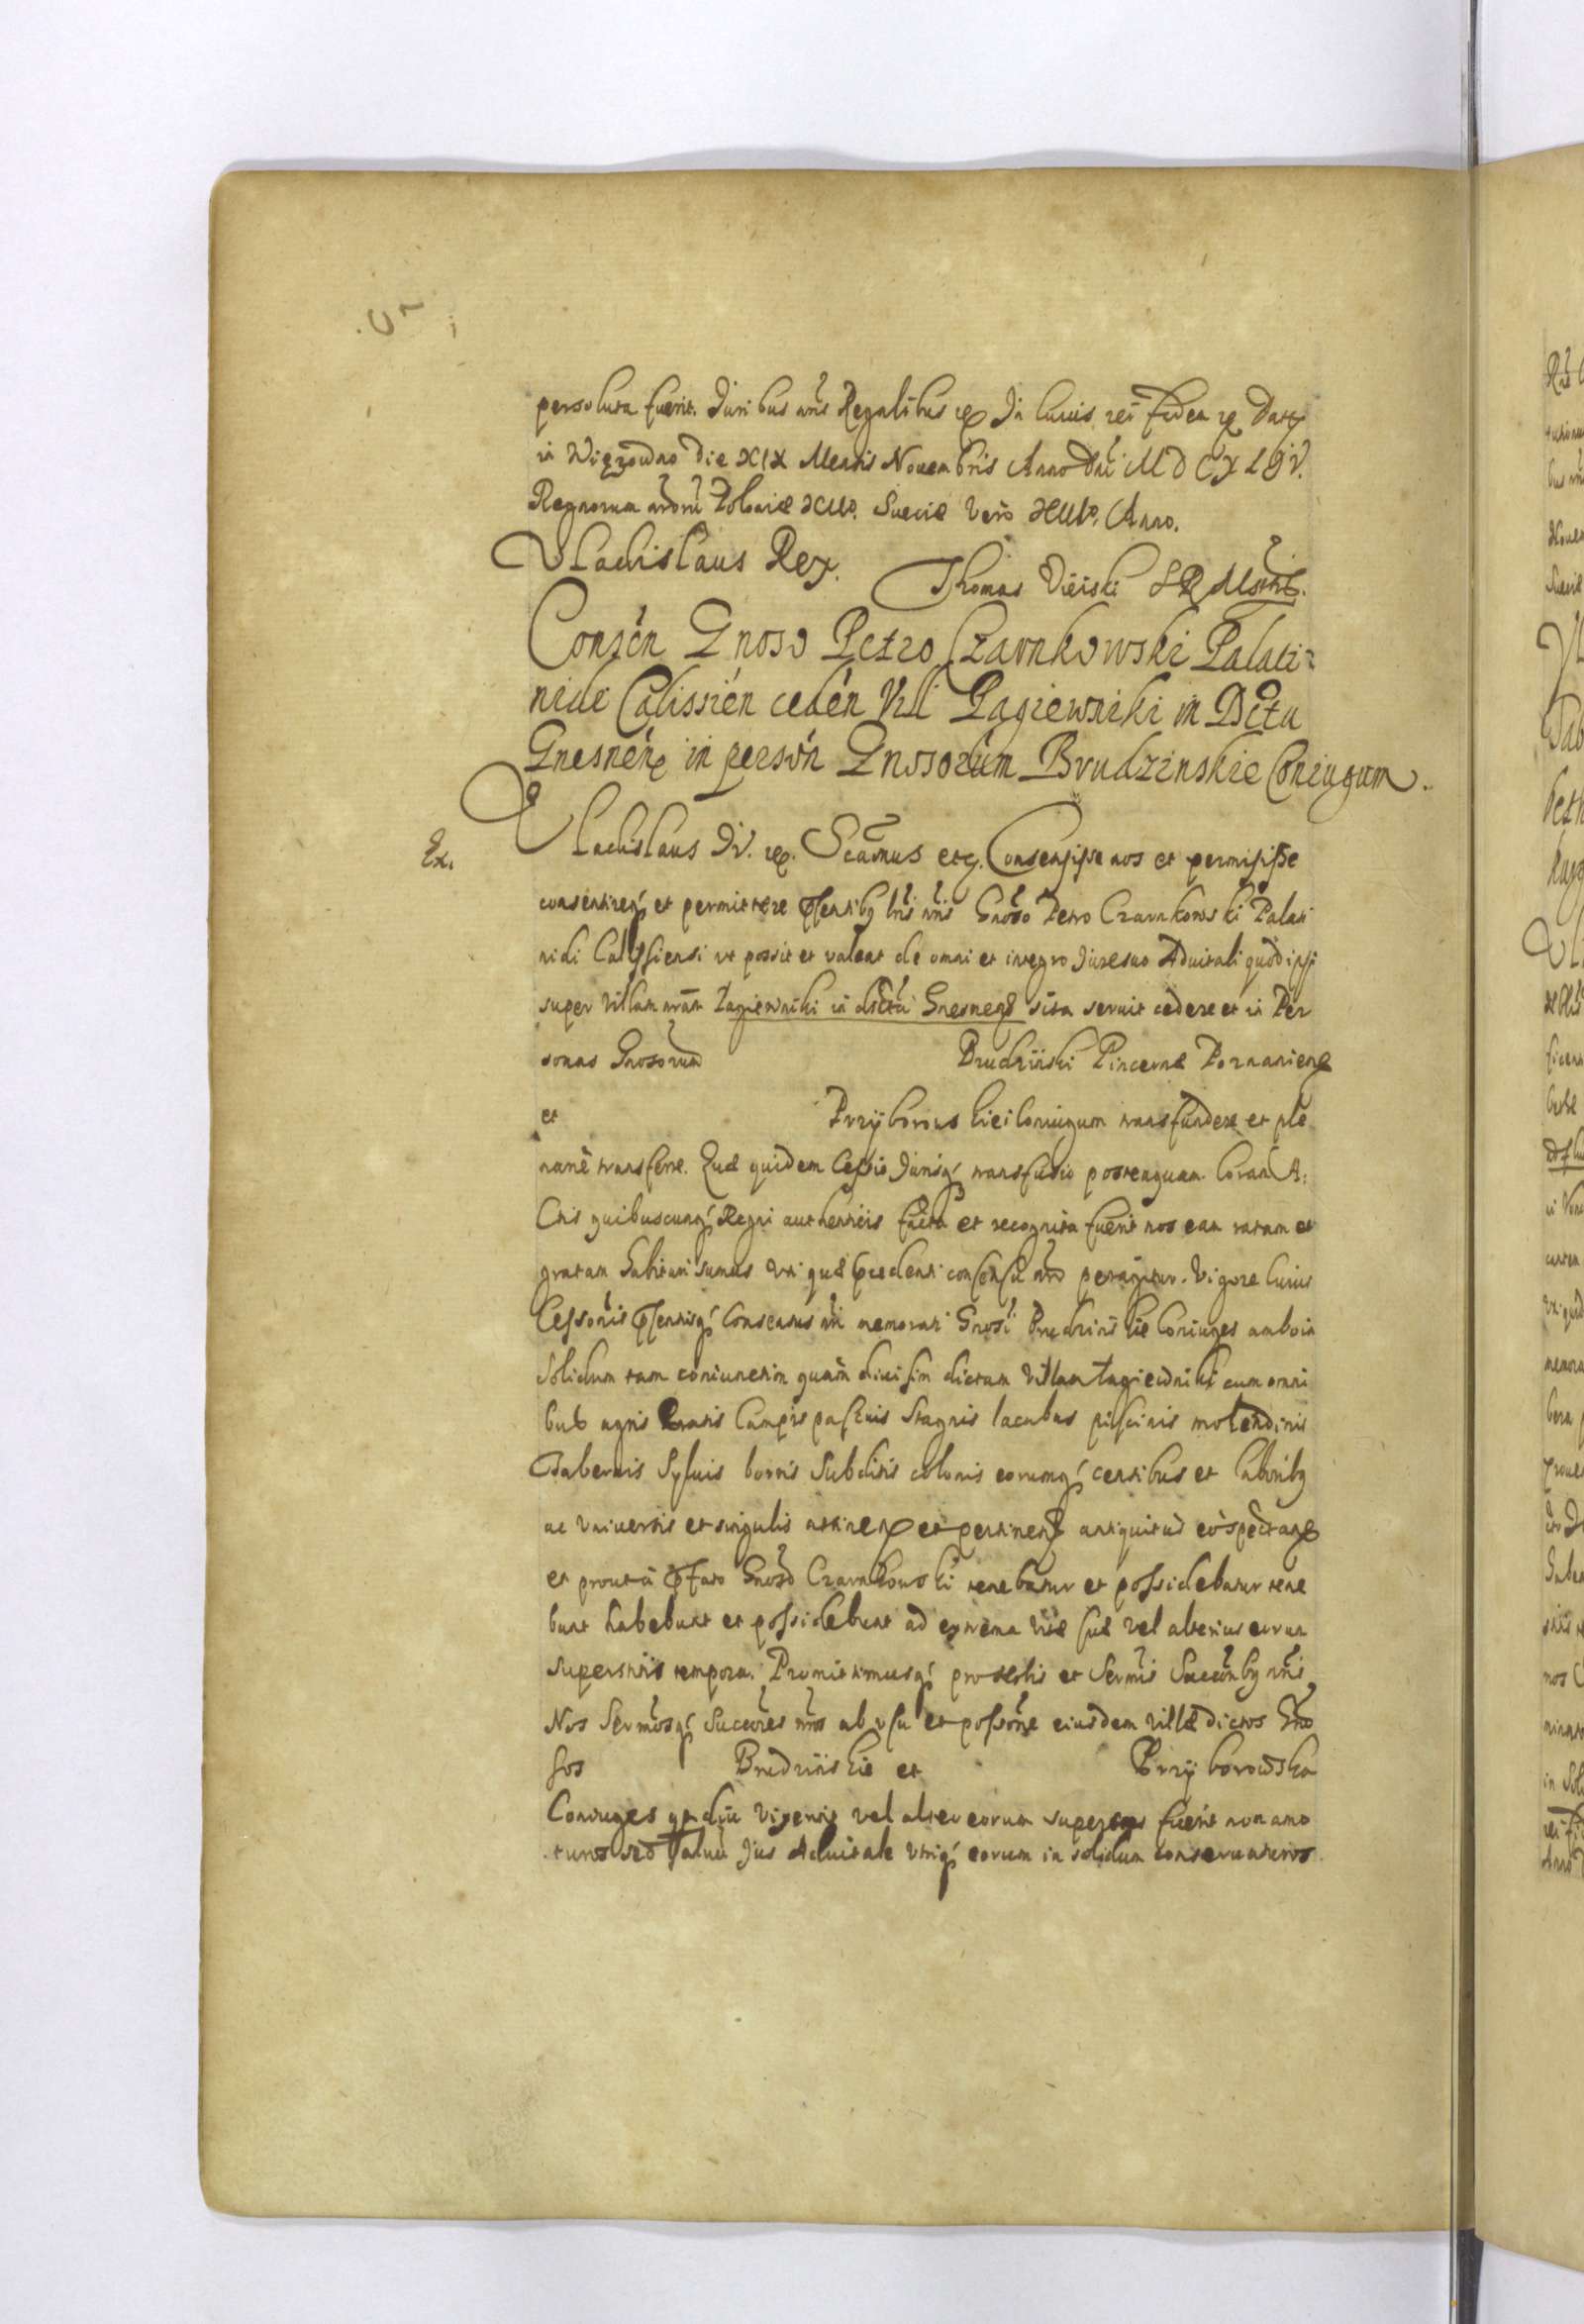 persoluta fuerit. Juribus nris Regalibus etc In cuius rei fidem etc Datt
in Wiązowno die XIX Mensis Novembris Anno Dni M D C X L I V.
Regnorum nrorum Poloniæ XII. Sueciæ vero XIII. Anno.
Vladislaus Rex. Thomas Vieiski
Consen Gnoso Petro Czarnkowski Palati=
nide Calissien ceden Vil Łagiewniki in Dctu
Gnesnen in person Gnosorum Brudzinskie Coniugum.
Ex. Vladislaus IV. etc. Significamus etc. Consensisse nos et permisisse
consentireq et permittere psentibq lris nris Gnoso Petro Czarnkowski Palati
nidi Calissiensi ut possit et valeat de omni et integro Jure suo Advitali quod ipsi
super Villam nram Łagiewniki in dictu Gnesnens sita servit cedere et in Per
sonas Gnosorum Brudziński Pincernæ Poznaniens
et Przyborowskiei Coniugum transfundere et ple
narie transferre. Quæ quidem Cessio Jurisq transfusio posteaquam Coram A.
Ctis quibuscunq Regni authenticis facta et recognita fuerit nos eam ratam et
gratam habituri sumus uti quæ præcedenti consensu nro peragitur. Vigore cuius
Cessonis psentisq Consensus nri memorati Gnosi Brudzinskie Coniuges ambo in
solidum tam coniunctim quam divisim dictam Villam Łagiewniki cum omni
bus agris Pratis Campis pascuis Stagnis lacubus piscinis molendinis
Tabernis Sylvis borris Subditis colonis eorumq censibus et laboribq
ac Universis et singulis attinen et pertinen antiquitus eo spectan
et prout a pfato Gnoso Czarnkowski tenebatur et possidebatur tene
bunt habebunt et possidebunt ad extrema vitæ suæ vel alterius eorum
superstitis tempora. Promittimusq pro Nobis et Sermis Succonbq nris
Nos Sermosq Succores nros ab usu et possone eiusdem Villæ dictos Gno
sos Brudzińskie et Przyborowska
Coniuges qmdiu vixerint vel alter eorum superstes fuerit non amo
turos sed salvum Jus Advitale utriq eorum in solidum conservaturos.